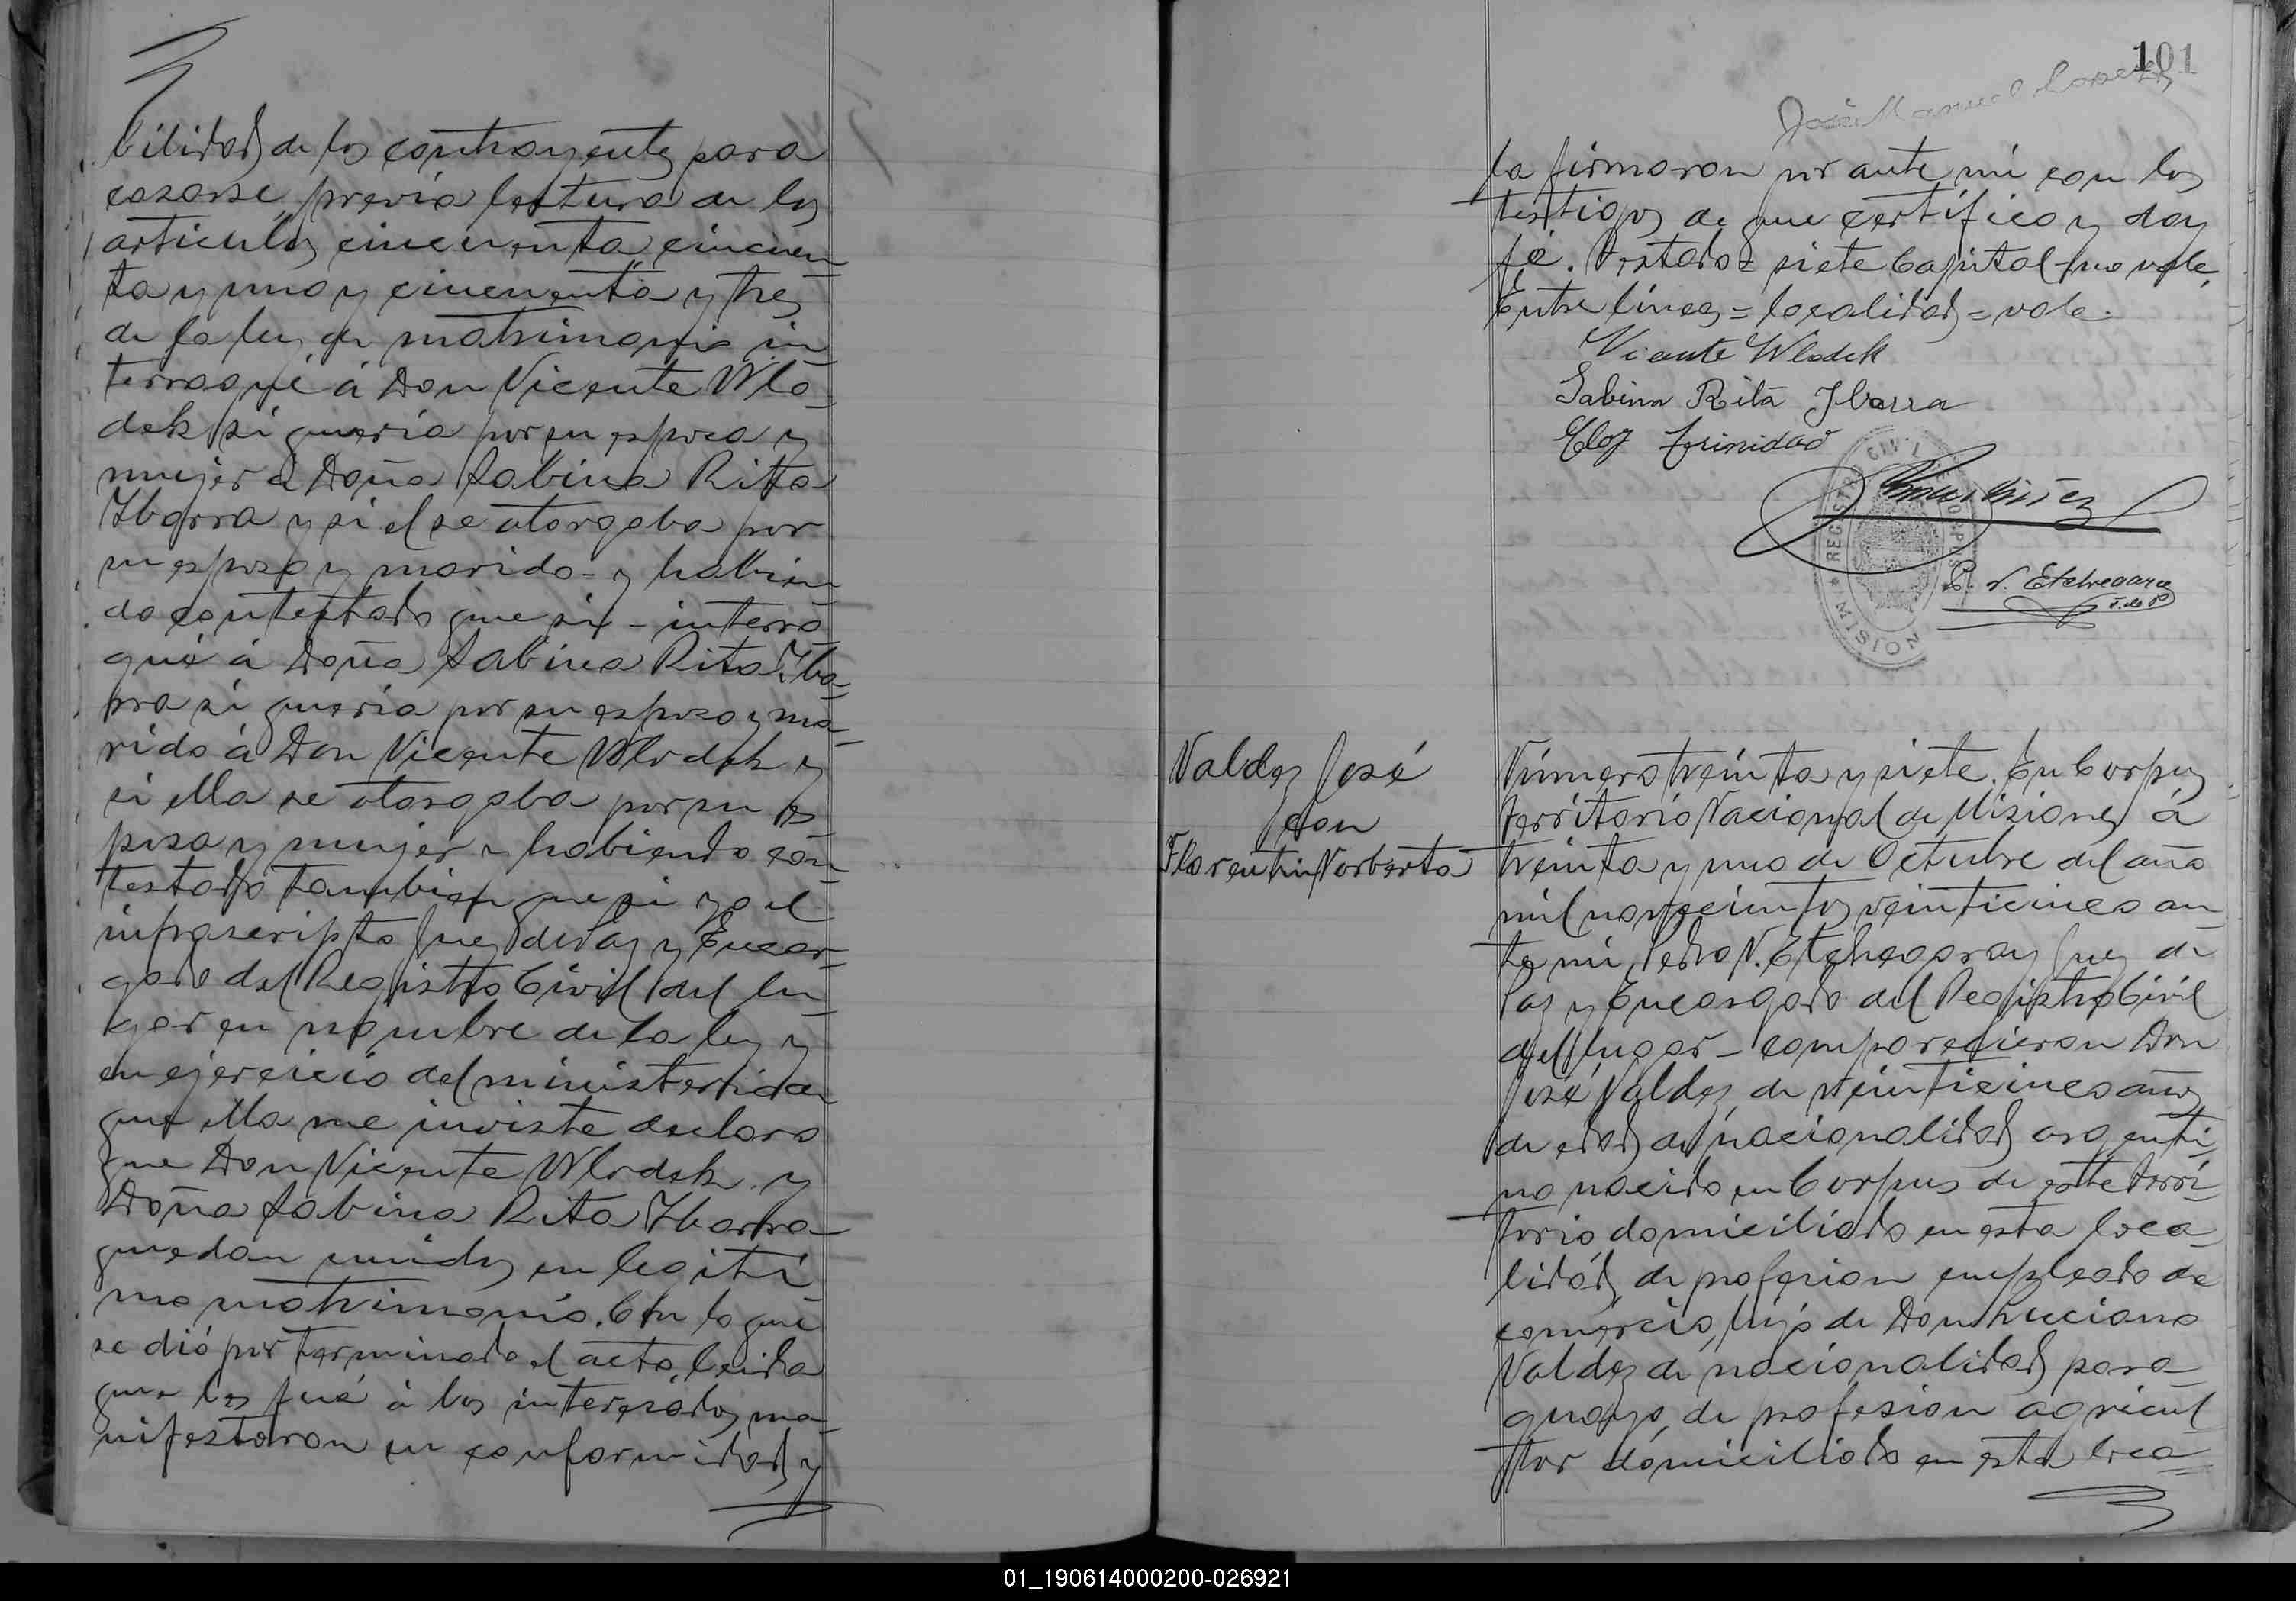 bilidad de los contrayentes para
casarse, previa lectura de los
articulos cincuenta, cincuen-
ta y uno y cincuenta y tres
de la ley de matrimonio in-
terrogué á Don Vicente Wlo-
dek si queria por su esposa y
mujer á Doña Sabina Rita
Ybarra y si el se otorgaba por
su esposo y marido - y habien-
do contestado que si - interro-
gué á Doña Sabina Rita Yba-
rra si queria por su esposo y ma-
rido á Don Vicente Wlodek y
si ella se otorgaba por su es-
posa y mujer y habiendo con-
testado tambien que si yo el
infrascripto Juez de Paz y Encar-
gado del Registro Civil del lu-
gar en nombre de la ley y
en ejercicio del ministerio de
que ella me inviste declaro
que Don Vicente Wlodek y
Doña Sabina Rita Ybarra
quedan unidos en legiti-
mo matrimonio. Con lo que
se dió por terminado el acto, leida
que les fué á los interesados, ma-
nifestaron su conformidad y
101
José Manuel Lopez
la firmaron por ante mi con los
testigos de que certifico y doy
fé. Testado = siete Capital - no vale.
Entre lineas = localidad = vale.
Vicente Wlodek
Sabina Rita Ybarra
Eloy Trinidad
REGISTRO CIVIL
MISIONES
P. N. Etchegaray
J. de P.
Valdez José
con
Florentin Norberta
Número treinta y siete. En Corpus
territorio Nacional de Misiones á
treinta y uno de Octubre del año
mil novecientos veinticinco an-
te mi, Pedro N. Etchegaray Juez de
Paz y Encargado del Registro Civil
del lugar - comparecieron Don
José Valdez, de veinticinco años
de edad de nacionalidad argenti-
no nacido en Corpus de este terri-
torio, domiciliado en esta loca-
lidad, de profesion empleado de
comercio, hijo de Don Luciano
Valdez de nacionalidad para-
guayo, de profesion agricul-
tor domiciliado en esta loca-
01_190614000200-026921